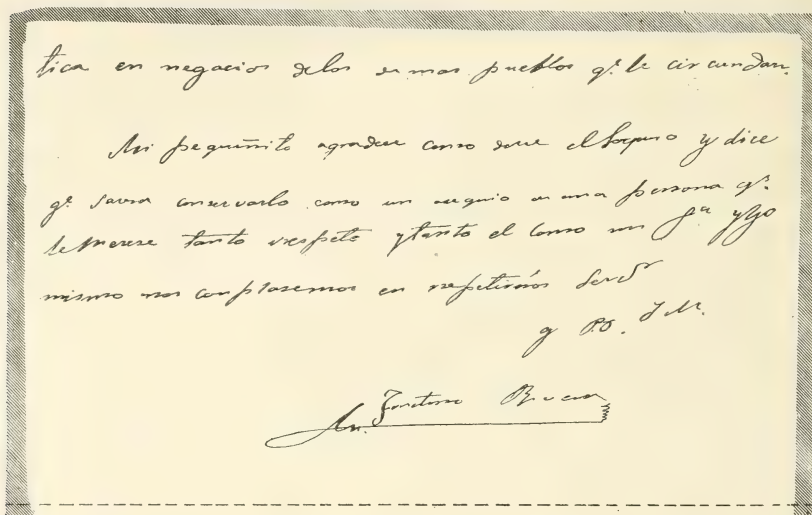 tica en negacios delos demas pueblos q.e le circundan.
Mi pequeñito agradese como deve el Sorpeso y dice
q.e savra conservarlo como un osequio de una persona q.e
le Merese tanto respeto ytanto el como mi S.ra yYo
mismo nos conplasemos en repetirnos Serv.r
y
Fructuoso Rivera